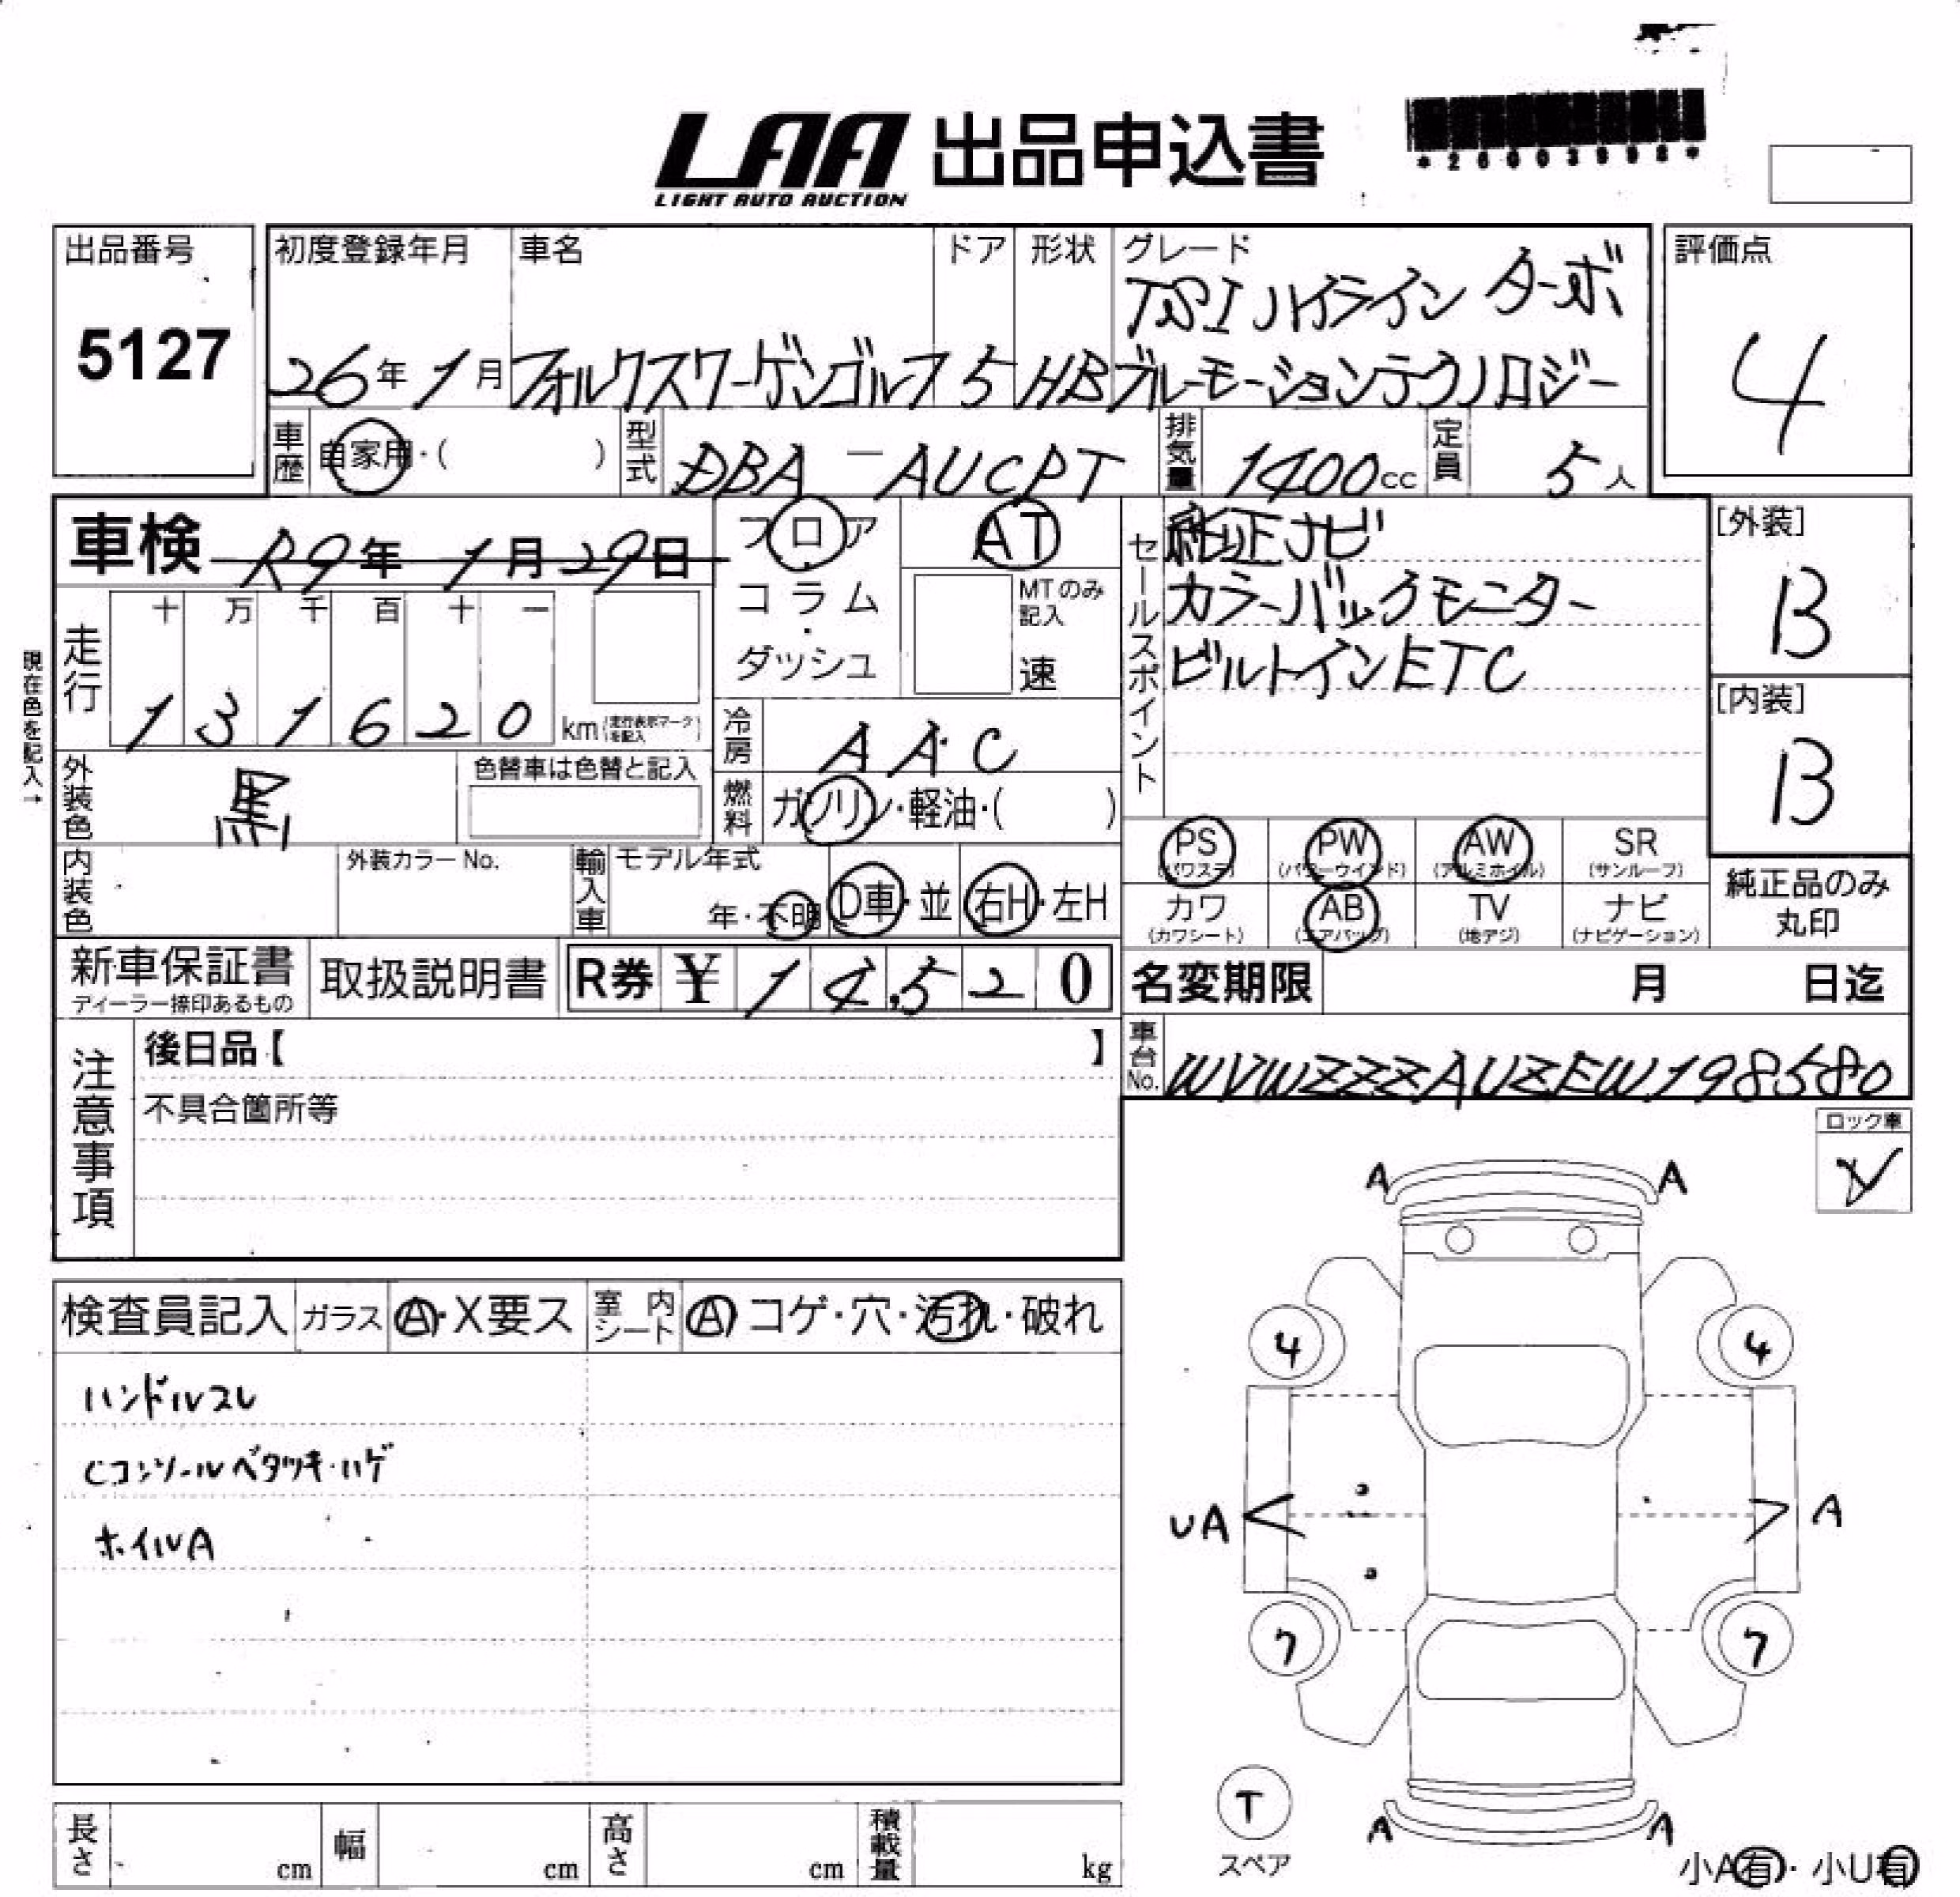 LAA 出品申込書
LIGHT AUTO AUCTION
出品番号
5127
初度登録年月
26年1月
車名
フォルクスワーゲンゴルフ
ドア
5
形状
HB
グレード
TSIハイライン ターボ
ブルーモーションテクノロジー
評価点
4
車歴 自家用・( )
型式 DBA-AUCPT
排気量 1400cc
定員 5人
車検 R9年1月29日
フロア
コラム・
ダッシュ
AT
MTのみ記入
速
セールスポイント
純正ナビ
カラーバックモニター
ビルトインETC
[外装]
B
[内装]
B
現在色を記入→
走行
十 万 千 百 十 一
1 3 1 6 2 0 km (走行表示マークを記入)
冷房 AAC
外装色 黒
色替車は色替と記入
燃料 ガソリン・軽油・( )
PS (パワステ) PW (パワーウインド) AW (アルミホイル) SR (サンルーフ)
カワ (カワシート) AB (エアバッグ) TV (地デジ) ナビ (ナビゲーション)
純正品のみ
丸印
内装色
外装カラーNo.
輸入車 モデル年式
年・不明 D車・並 右H・左H
新車保証書
ディーラー捺印あるもの
取扱説明書
R券 ¥ 14,520
名変期限 月 日迄
車台No. WVWZZZAUZEW198580
注意事項
後日品【 】
不具合箇所等
ロック車
検査員記入 ガラス A・X要ス 室内シート A コゲ・穴・汚れ・破れ
ハンドルスレ
Cコンソールベタツキ・ハゲ
ホイルA
A A
4 4
UA A
7 7
T
スペア
A A
小A有・小U有
長さ cm 幅 cm 高さ cm 積載量 kg